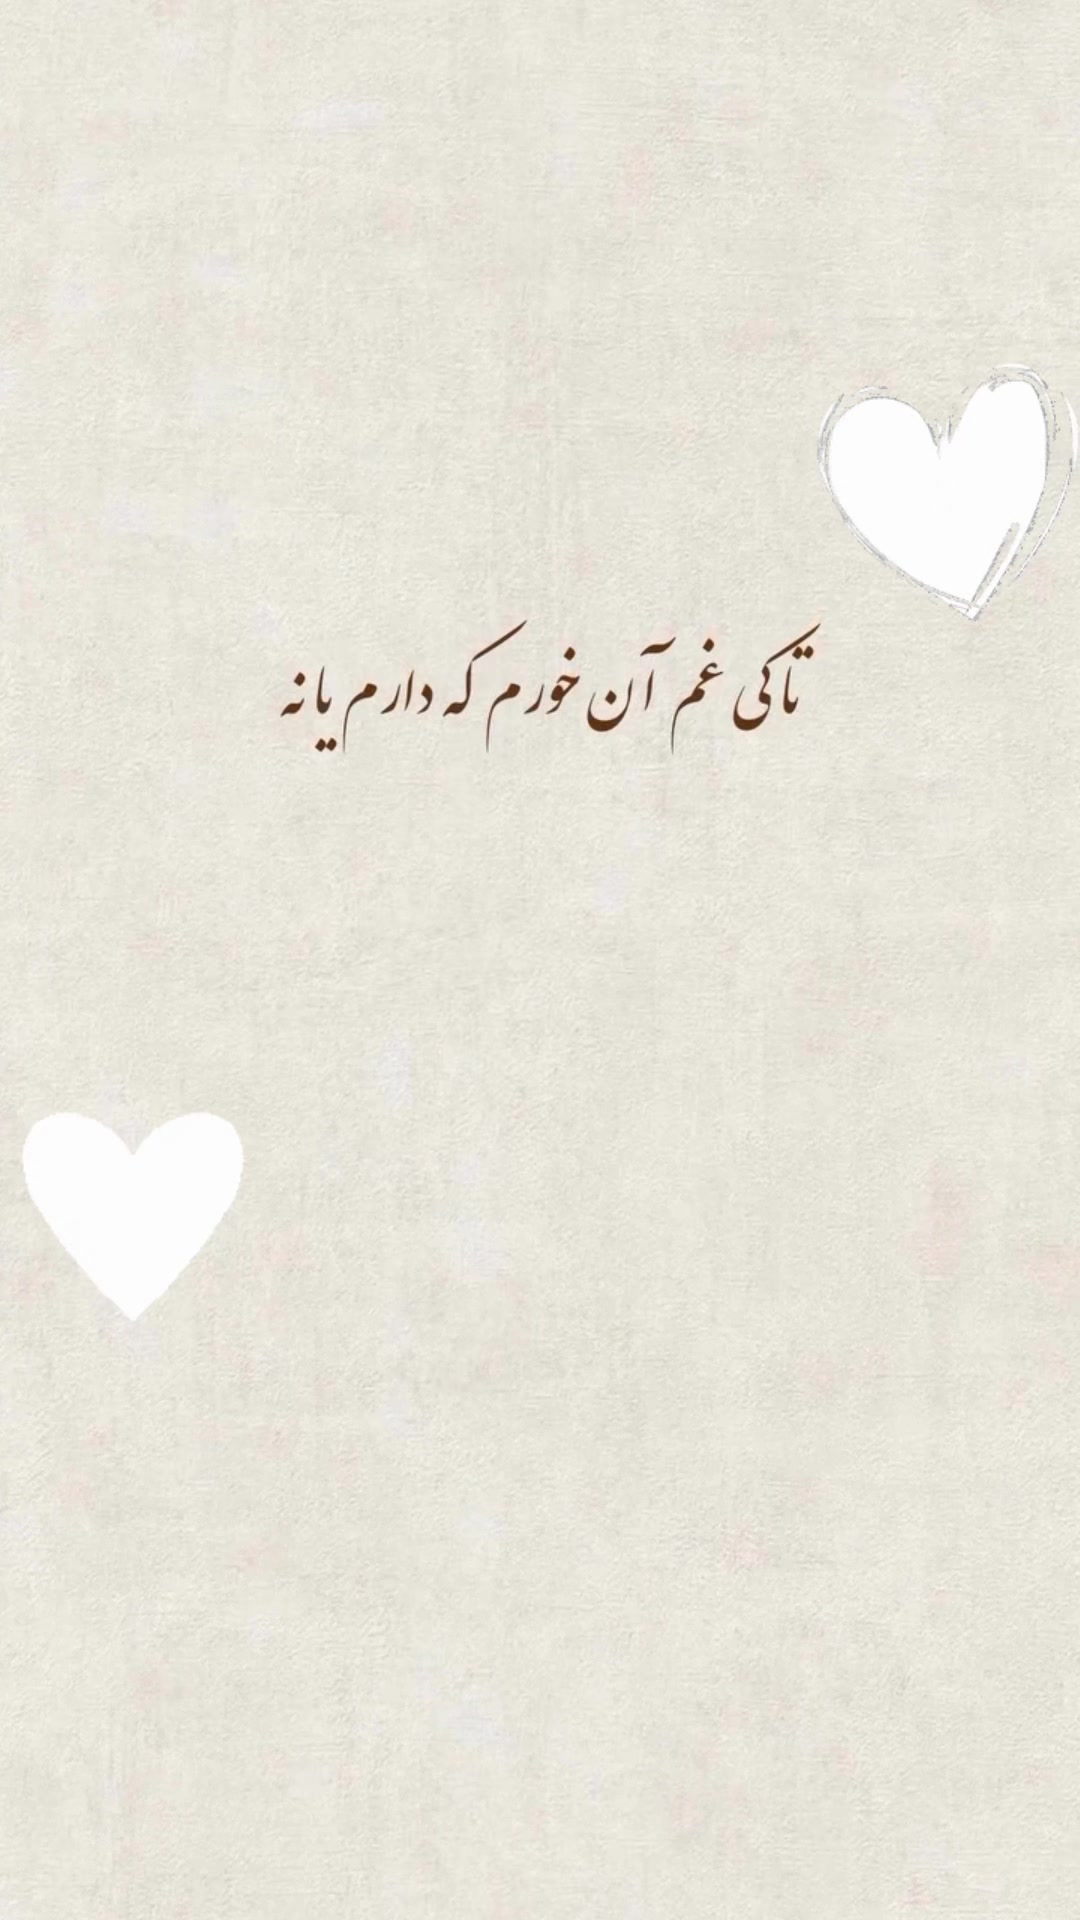 تا کی غم آن خورم که دارم یا نه